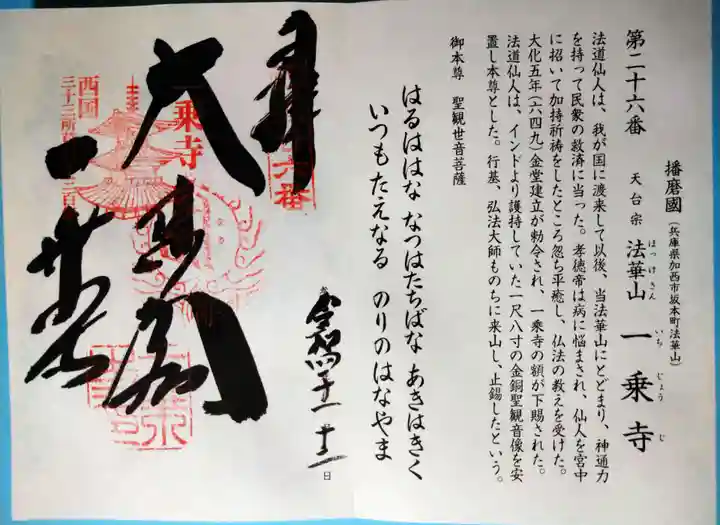 第二十六番
播磨國（兵庫県加西市坂本町法華山）
天台宗 法華山 一乗寺
ほっけさん いちじょうじ
法道仙人は、我が国に渡来して以後、当法華山にとどまり、神通力
を持って民衆の救済に当った。孝徳帝は病に悩まされ、仙人を宮中
に招いて加持祈祷をしたところ忽ち平癒し、仏法の教えを受けた。
大化五年（六四九）金堂建立が勅令され、一乗寺の額が下賜された。
法道仙人は、インドより護持していた一尺八寸の金銅聖観音像を安
置し本尊とした。行基、弘法大師ものちに来山し、止錫したという。
御本尊 聖観世音菩薩
はるははな なつはたちばな あきはきく
いつもたえなる のりのはなやま
奉拝
六番
大悲閣
一乗寺
西国
三十三所
令和四年十一月十二日